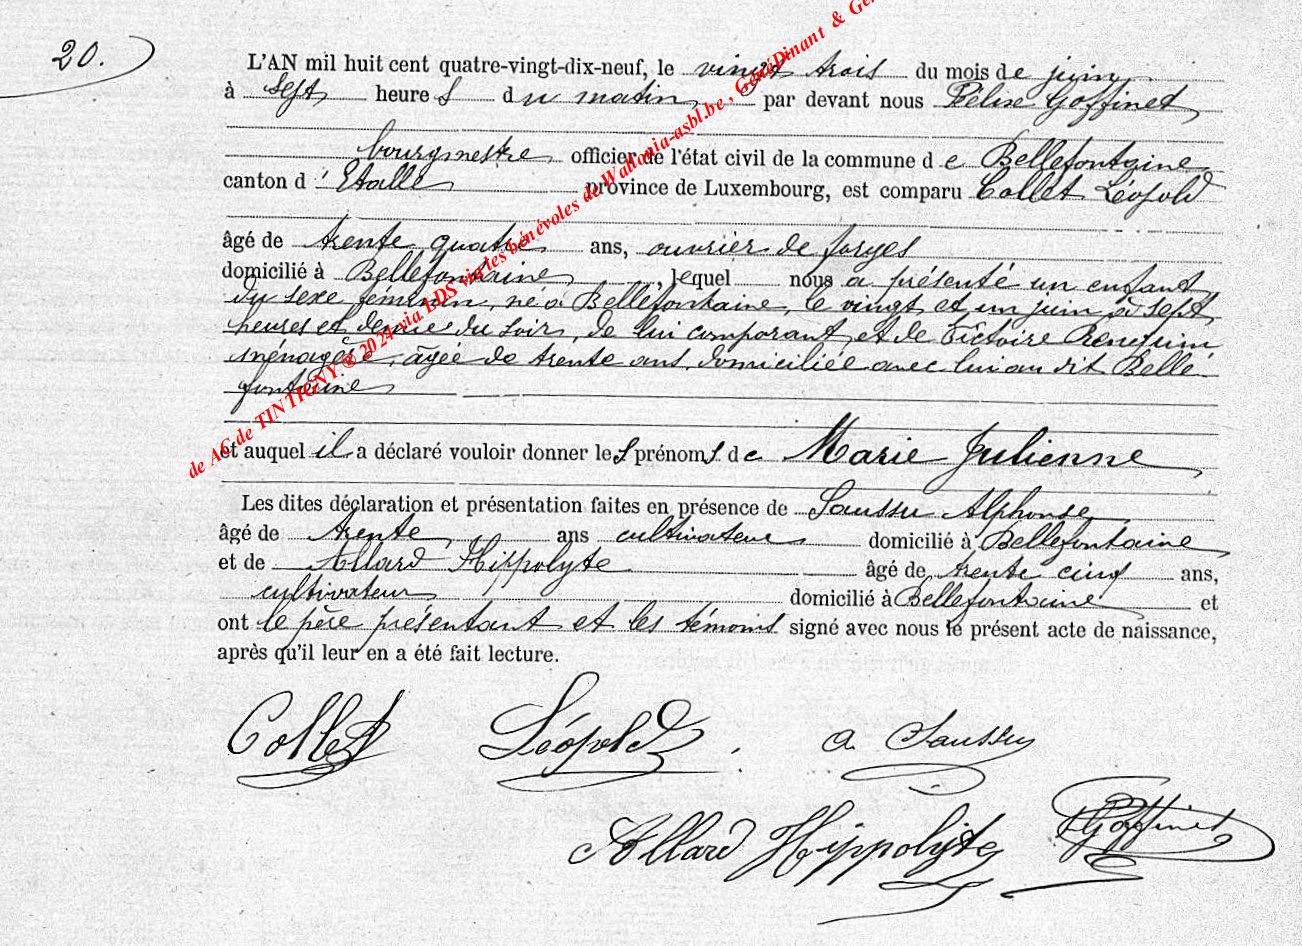 20.
L'AN mil huit cent quatre-vingt-dix-neuf, le vingt trois du mois de juin
à sept heures du matin par devant nous Pélise Goffinet,
bourgmestre officier de l'état civil de la commune de Bellefontaine
canton d'Etalle province de Luxembourg, est comparu Collet Léopold
âgé de trente quatre ans, ouvrier de forges
domicilié à Bellefontaine, lequel nous a présenté un enfant
du sexe féminin, né à Bellefontaine, le vingt et un juin à sept
heures et demie du soir, de lui comparant, et de Victoire
ménagère, âgée de trente ans, domiciliée avec lui au dit Belle-
fontaine
et auquel il a déclaré vouloir donner les prénoms de Marie Julienne
Les dites déclaration et présentation faites en présence de Saussu Alphonse,
âgé de trente ans cultivateur domicilié à Bellefontaine
et de Allard Hippolyte âgé de trente cinq ans,
cultivateur domicilié à Bellefontaine et
ont le père présentant et les témoins signé avec nous le présent acte de naissance,
après qu'il leur en a été fait lecture.
Collet Léopold. a Saussu
Allard Hippolyte Goffinet
de AC de TINTIGNY ® 2024 via LDS via les bénévoles de Wallonia-asbl.be, GénéDinant & Gé